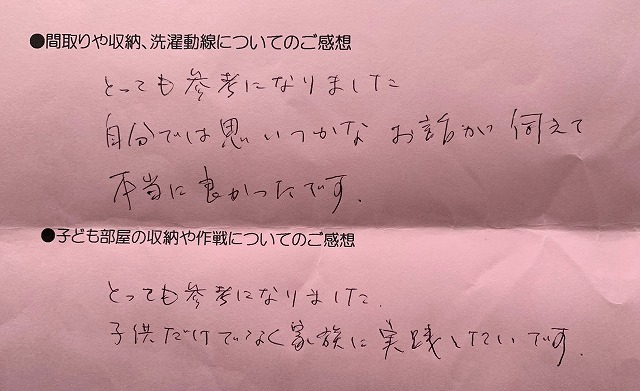 ●間取りや収納、洗濯動線についてのご感想
とっても参考になりました
自分では思いつかな お話が 伺えて
本当に良かったです.
●子ども部屋の収納や作戦についてのご感想
とっても参考になりました.
子供だけでなく家族に実践したいです.